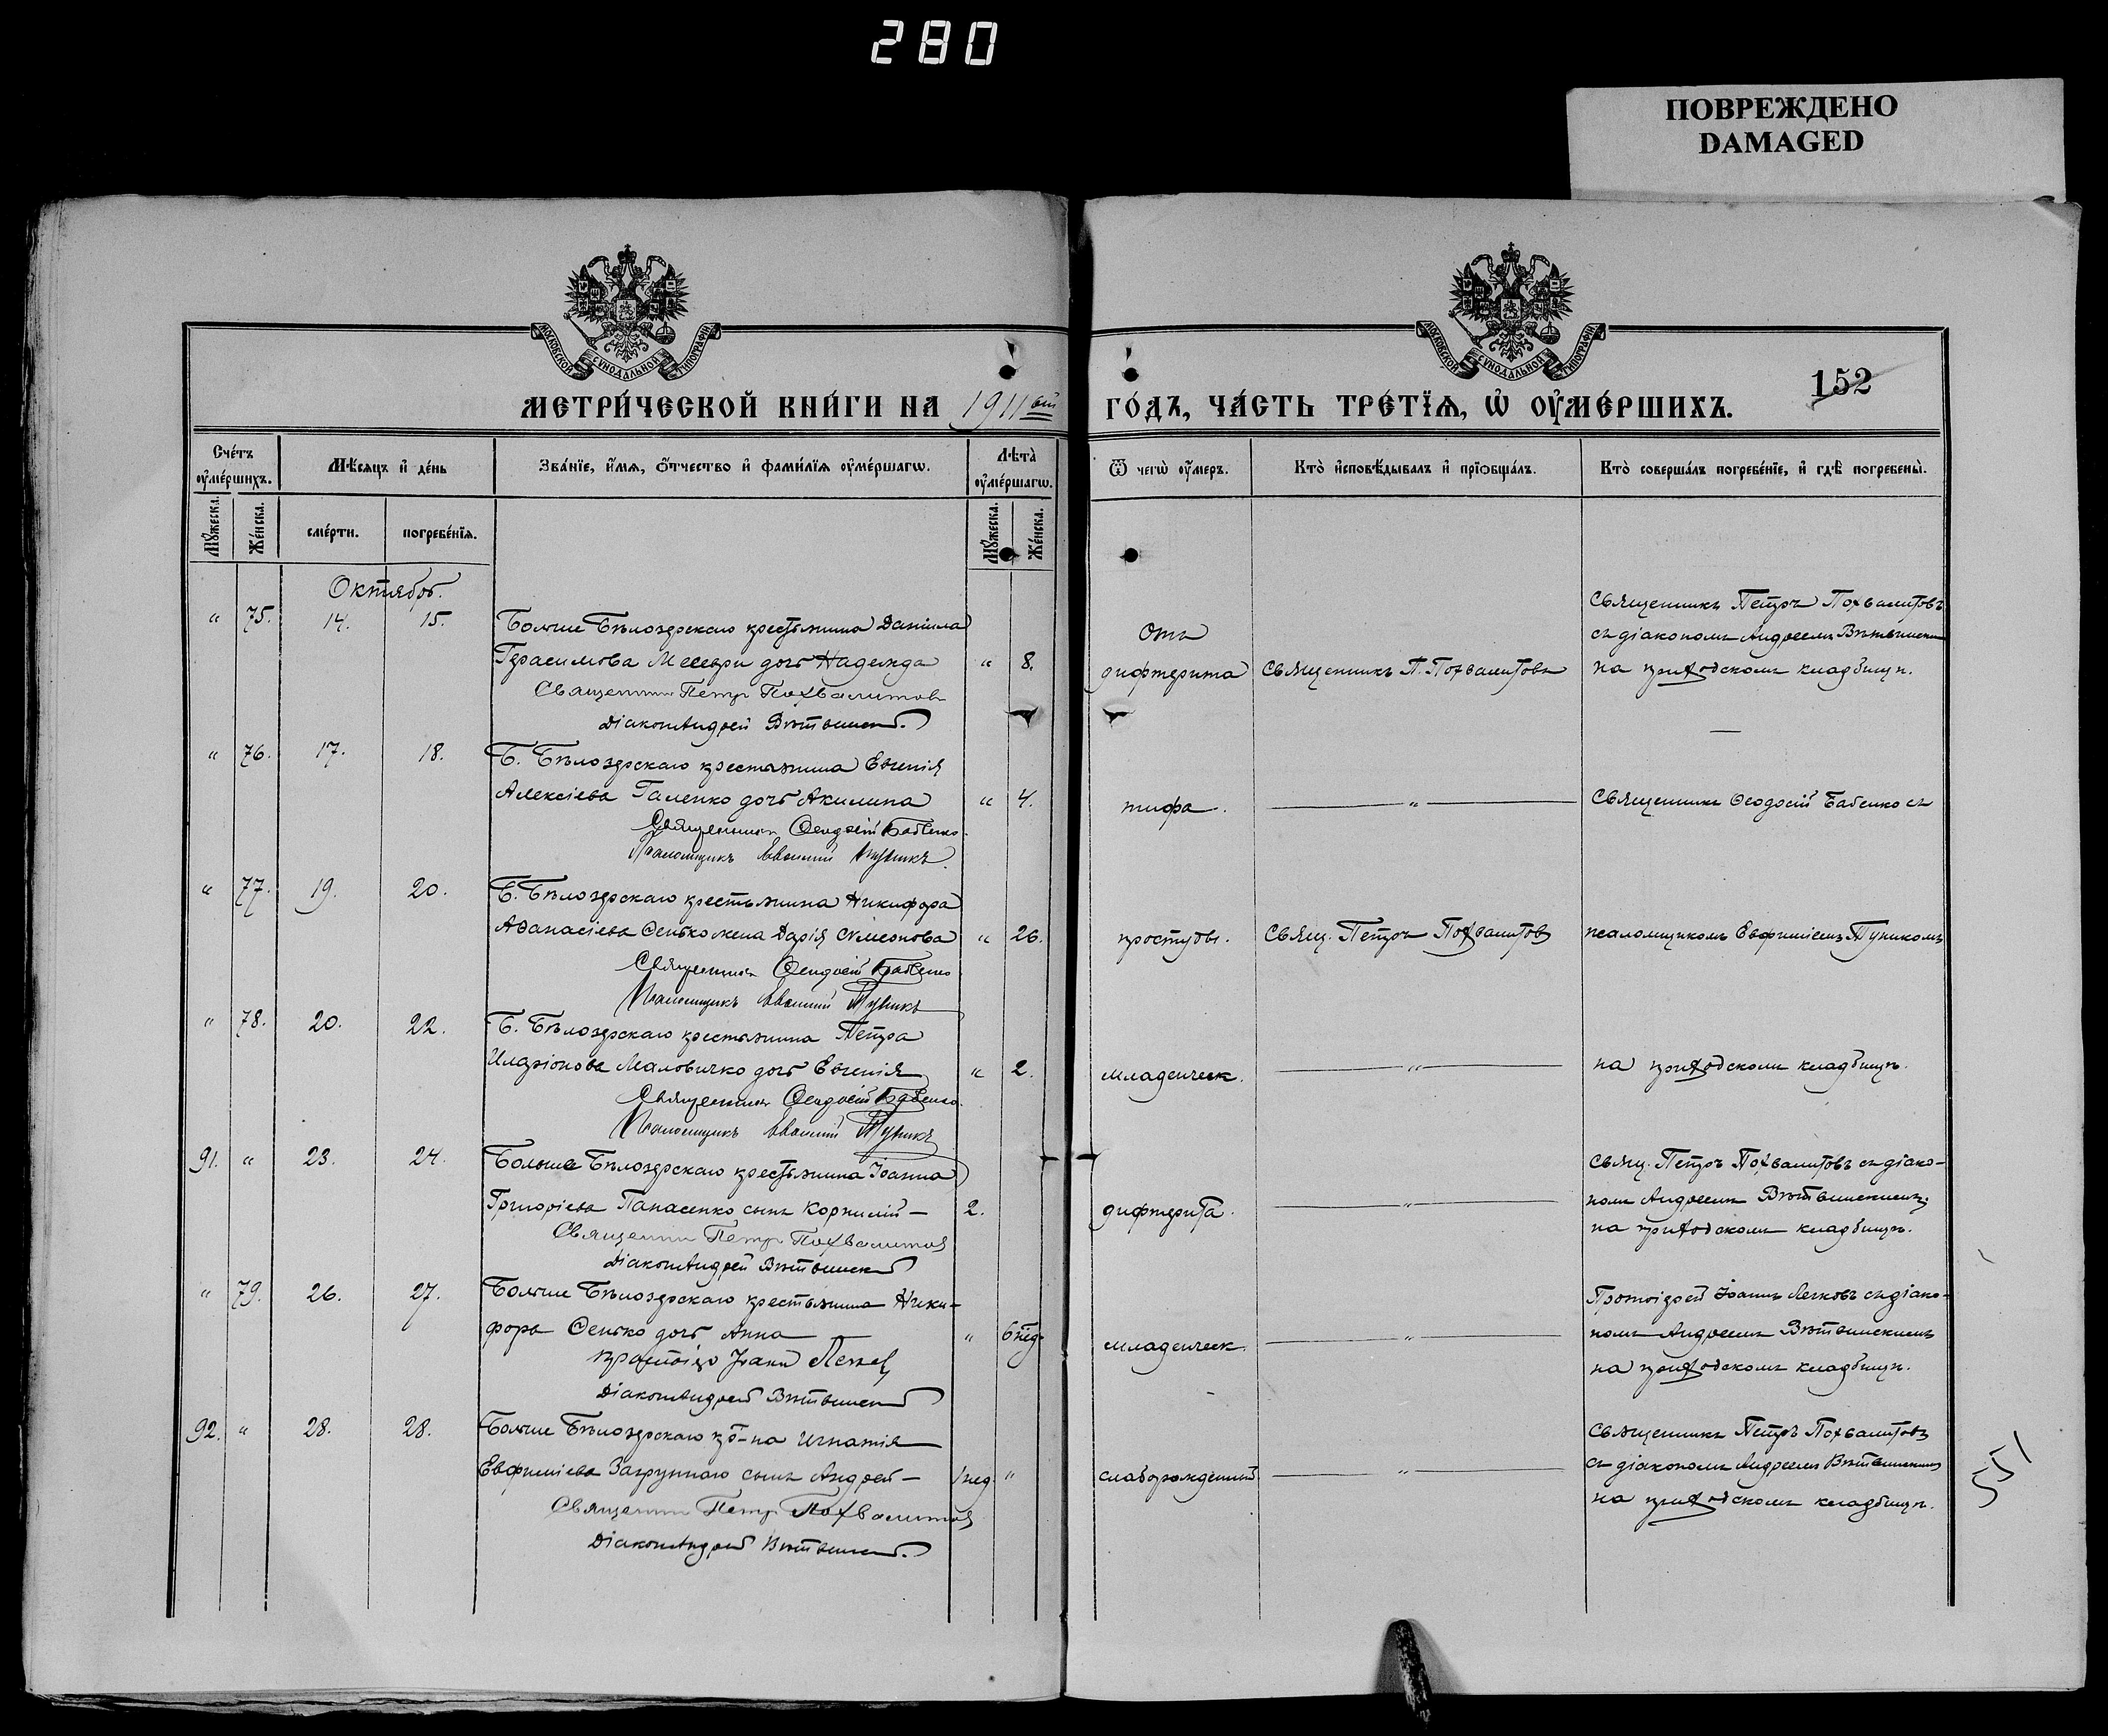 280
ПОВРЕЖДЕНО
DAMAGED
МОСКОВСКОЙ СУНОДАЛЬНОЙ ТИПОГРАФІИ
МОСКОВСКОЙ СУНОДАЛЬНОЙ ТИПОГРАФІИ
152
МЕТРИ́ЧЕСКОЙ КНИ́ГИ НА 1911 ый ГО́ДЪ, ЧА́СТЬ ТРЕ́ТЇѦ, Ѡ҆ ОУ҆МЕ́РШИХЪ.
Сче́тъ оу҆ме́ршихъ.
Мѣ́сяцъ и҆ де́нь
Зва́нїе, и҆́мѧ, ѻ҆́тчество и҆ фами́лїѧ оу҆ме́ршагѡ.
Лѣ́та̀ оу҆ме́ршагѡ.
Ѿ чегѡ̀ оу҆́меръ.
Кто̀ и҆сповѣ́дывалъ и҆ прїобща́лъ.
Кто̀ соверша́лъ погребе́нїе, и҆ гдѣ̀ погребены̀.
Мꙋ́жеска.
Же́нска.
сме́рти.
погребе́нїѧ.
Мꙋ́жеска.
Же́нска.
Октябрь.
" 75. 14. 15. Больше Бѣлозерскаго крестьянина Даніила
Герасимова Месеври дочь Надежда " 8.
Священник Петр Похвалитов
Діаконъ Андрей Вѣтвинск
Отъ
дифтерита
Священникъ П. Похвалитовъ
Священникъ Петръ Похвалитовъ
съ діакономъ Андреемъ Вѣтвинским
на приходскомъ кладбищѣ.
" 76. 17. 18. Б. Бѣлозерскаго крестьянина Евгенія
Алексіева Галенко дочь Акилина " 4.
Священникъ Ѳеодосій Бабенко
Псаломщикъ Евѳимій Пупикъ
тифа. — " — Священникъ Ѳеодосій Бабенко съ
" 77. 19. 20. Б. Бѣлозерскаго крестьянина Никифора
Аѳанасіева Сенько жена Дарія Сѵмеонова " 26.
Священникъ Ѳеодосій Бабенко
Псаломщикъ Евѳимій Пупикъ
простуды. Свящ. Петръ Похвалитовъ псаломщикомъ Евфиміемъ Пупикомъ
" 78. 20. 22. Б. Бѣлозерскаго крестьянина Петра
Иларіонова Маловичко дочь Евгенія " 2.
Священникъ Ѳеодосій Бабенко.
Псаломщикъ Евѳимій Пупикъ
младенческ. — " — на приходскомъ кладбищѣ.
91. " 23. 24. Больше Бѣлозерскаго крестьянина Іоанна
Григоріева Панасенко сынъ Корнилій — 2.
Священник Петр Похвалитов
Діаконъ Андрей Вѣтвинск
дифтерита. — " —
Свящ. Петръ Похвалитовъ съ діако-
номъ Андреемъ Вѣтвинскимъ
на приходскомъ кладбищѣ.
" 79. 26. 27. Больше Бѣлозерскаго крестьянина Ники-
фора Сенько дочь Анна " 6 нед.
Протоіер Іоанн
Діаконъ Андрей Вѣтвинск
младенческ. — " —
Протоіерей Іоаннъ съ діако-
номъ Андреемъ Вѣтвинскимъ
на приходскомъ кладбищѣ.
92. " 28. 28. Больше Бѣлозерскаго кр-на Игнатія
Евфиміева Загрупнаго сынъ Андрей — 1 нед. "
Священник Петр Похвалитов
Діаконъ Андрей Вѣтвинск
слаборожденный — " —
Священникъ Петръ Похвалитовъ
съ діакономъ Андреемъ Вѣтвинскимъ
на приходскомъ кладбищѣ.